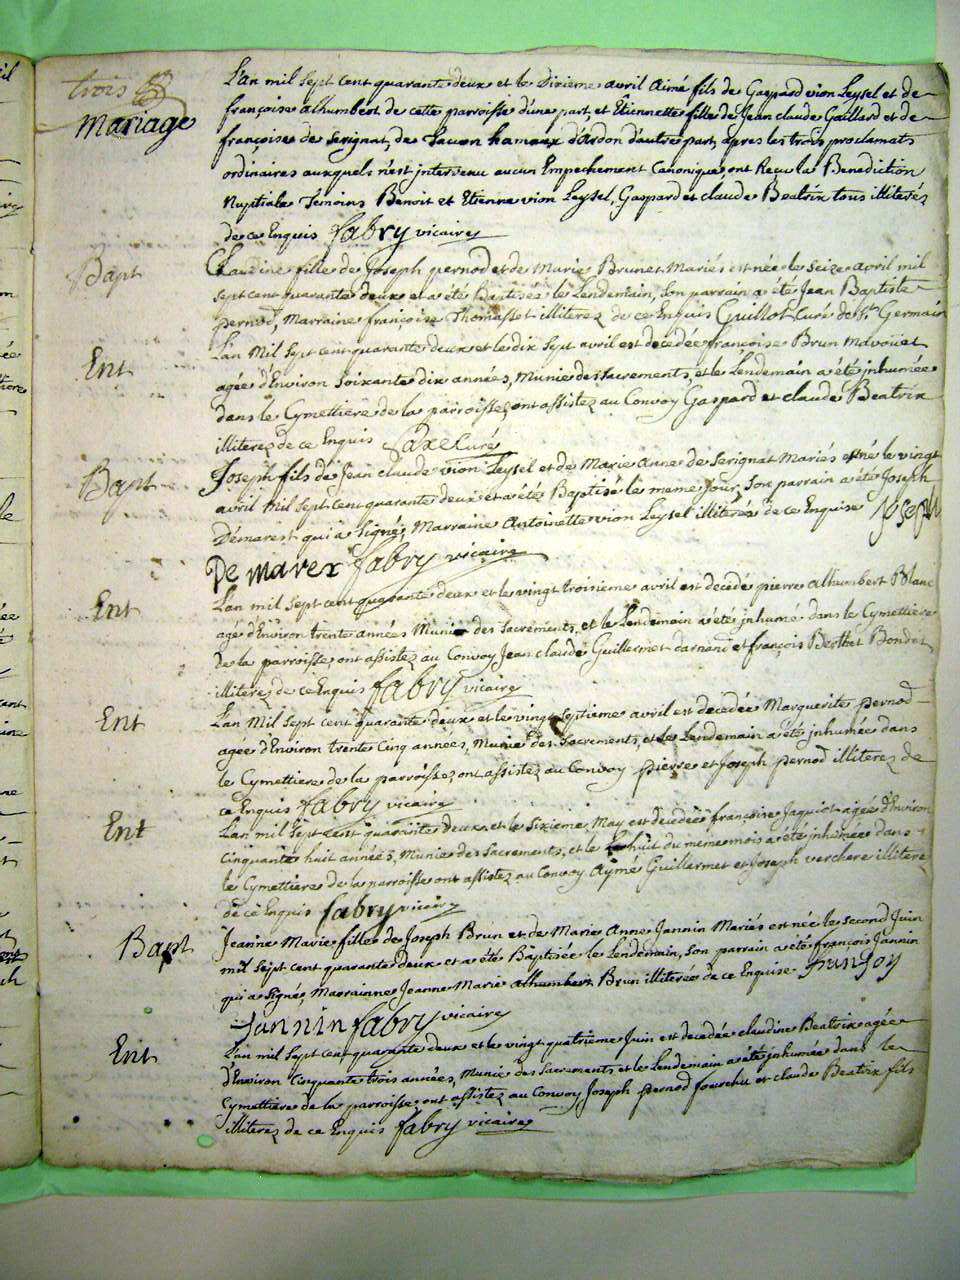 trois
Mariage
L'an mil sept cent quarante deux et le dixieme avril Aimé fils de Gaspard vion Leysel et de
françoise alhumbert de cette parroisse d'une part, et Etiennette fille de Jean claude Gaillard et de
françoise de Serignat, de hameax d'Ardon d'autre part, apres les trois proclamats
ordinaires auxquels n'est jntervenu aucun Empechement Canonique, ont Reçu la Benediction
Nuptiale Témoins Benoit et Etienne vion Leysel, Gaspard et claude Beatrix tous illiterés
de ce Enquis fabry vicaire
Bapt
Claudine fille de Joseph pernod et de Marie Brunet Mariés est née le seize avril mil
sept cent quarante deux et a été Baptisée le Lendemain, son parrain a été Jean Baptiste
pernod, Marraine françoise Thomasset illiterez de ce Enquis Guillot Curé de St Germain
Ent
L'an Mil sept cent quarante deux et le dix sept avril est decedée françoise Brun Mavouet
agée d'Environ soixante dix années, Munie des sacrements, et le Lendemain a été jnhumée
dans le Cymettiere de la parroisse, ont assistez au Convoy Gaspard et claude Beatrix
illiterez de ce Enquis Curé
Bapt
Joseph fils de Jean claude vion Leysel et de Marie Anne de Serignat Mariés est né le vingt
avril Mil sept cent quarante deux et a étéz Baptisé le meme jour, son parrain a été Joseph
Démarest qui a signé, Marraine Antoinette vion Leysel illiterés de ce Enquise Joseph
De marex fabry vicaire
Ent
L'an mil sept cent quarante deux et le vingt troisieme avril est decedé pierre alhumbert Blanc
agé d'Environ trente années Munie des Sacrements, et le Lendemain a été jnhumé dans le Cymettiere
de la parroisse, ont assistez au Convoy Jean claude Guillermet darnand et françois Berthet Bondet
illiterez de ce Enquis fabry vicaire
Ent
L'an Mil sept cent quarante deux et le vingt septieme avril est decedée Marguerite pernod
agée d'Environ trente Cinq années, Munie des Sacrements, et le Lendemain a été jnhumée dans
le Cymettiere de la parroisse, ont assistez au Convoy pierre et Joseph pernod illiterez de
ce Enquis fabry vicaire
Ent
L'an mil sept cent quarante deux et le sixieme May est decedée françoise Jaquiot agée d'Environ
Cinquante huit années, Munie des Sacrements, et le huit du même mois a été jnhumée dans
le Cymettiere de la parroisse ont assistez au Convoy Aymé Guillermet et Joseph verchere illiteré
de ce Enquis fabry vicaire
Bapt
Jeanne Marie fille de Joseph Brun et de Marie Anne Jannin Mariés est née le second Juin
mil sept cent quarante deux et a été Baptisée le Lendemain, son parrain a été françois Jannin
qui a signé, Marrainne Jeanne Marie alhumbert Brun illiterée de ce Enquise
Jannin fabry vicaire
Ent
L'an mil sept cent quarante deux et le vingt quatrieme Juin est decedée claudine Beatrix agée
d'Environ Cinquante trois années, Munie des Sacrements et le Lendemain a été jnhumée dans le
Cymettiere de la parroisse, ont assistez au Convoy Joseph pernod fourchu et claude Beatrix fils
illiterez de ce Enquis fabry vicaire